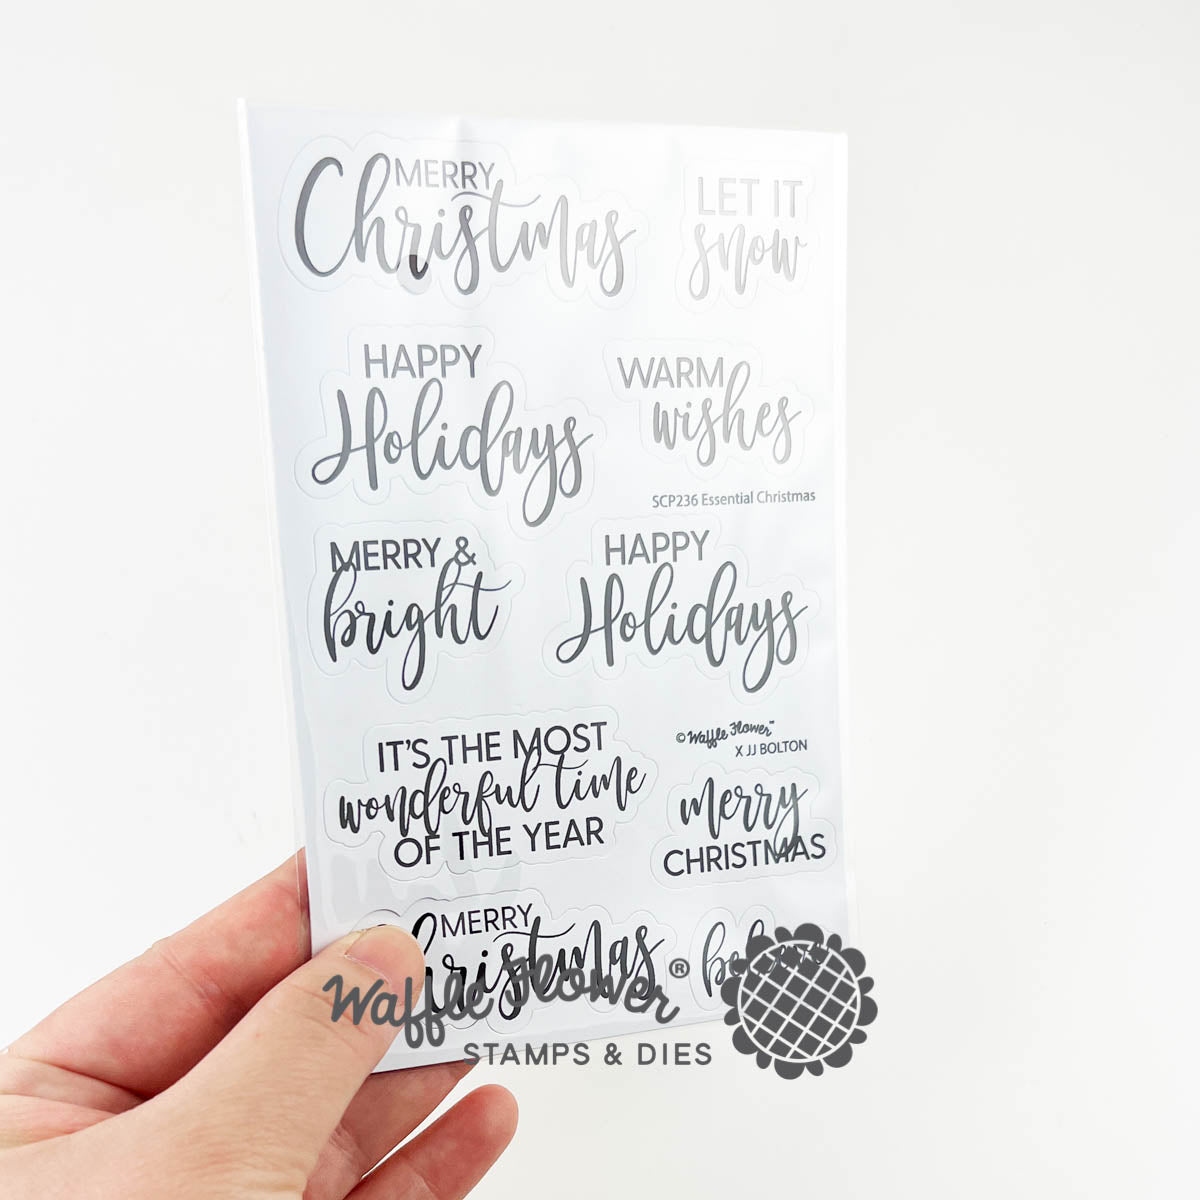 MERRY
Christmas
LET IT
snow
HAPPY
Holidays
WARM
wishes
SCP236 Essential Christmas
MERRY &
bright
HAPPY
Holidays
IT'S THE MOST
wonderful time
OF THE YEAR
© Waffle Flower™
X JJ BOLTON
merry
CHRISTMAS
MERRY
Christmas
believe
Waffle Flower®
STAMPS & DIES